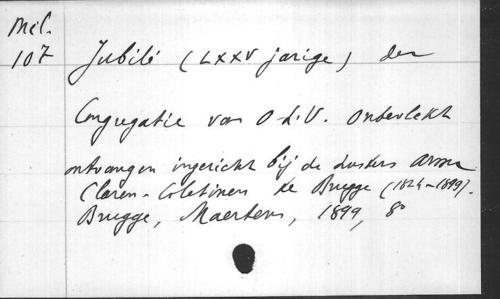 Mel.
107 Jubilé (LXXV jarige) der
Congregatie van O.L.V. Onbevlekt
ontvangen ingericht bij de Zusters Arme
Claren-Coletinen te Brugge (1824-1899).
Brugge, Maertens, 1899, 8°